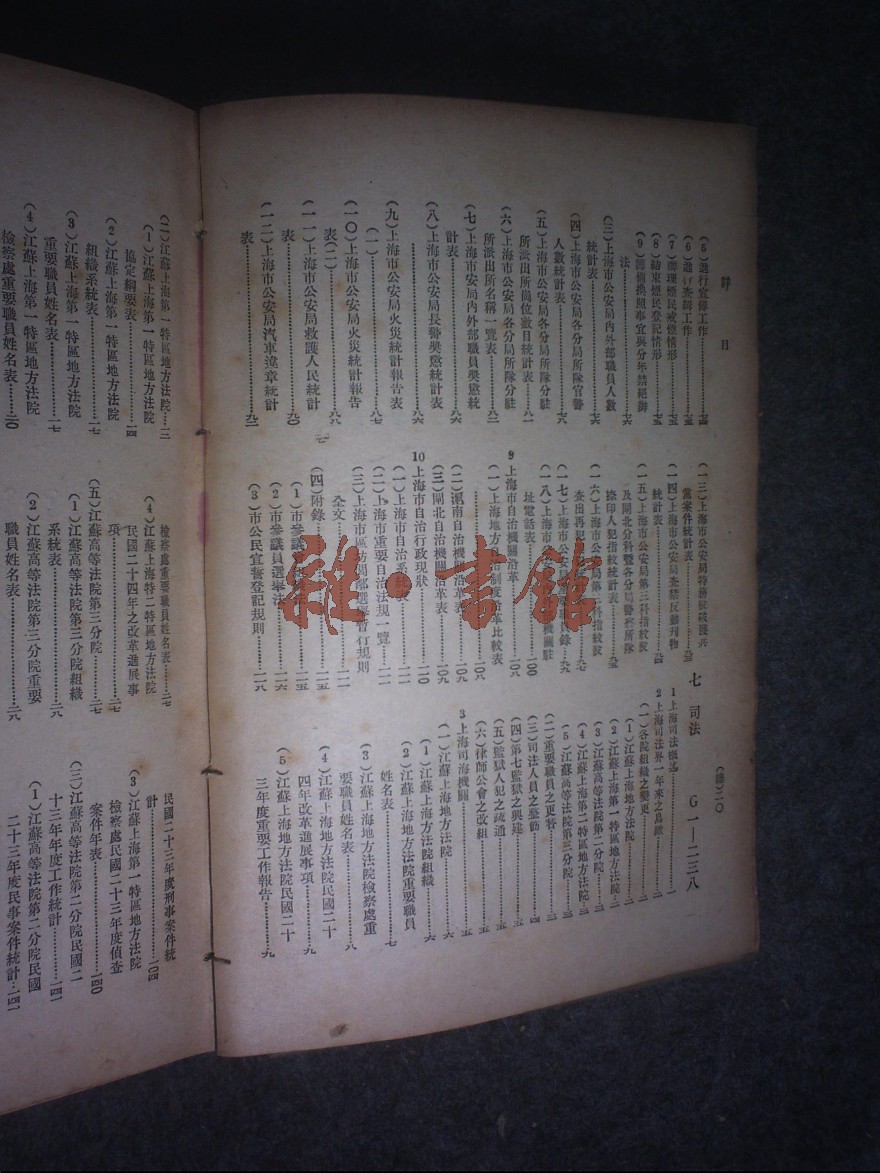 詳目
(總)二〇
(5)進行宣傳工作……七四
(6)進行查緝工作……七五
(7)辦理煙民戒煙情形……七五
(8)結束煙民登記情形……七五
法……七六
(三)上海市公安局內外部職員人數
統計表……七六
(四)上海市公安局各分局所隊官警
人數統計表……七八
(五)上海市公安局各分局所隊分駐
所派出所崗位數目統計表……八一
(六)上海市公安局各分局所隊分駐
所派出所名稱一覽表……八二
(七)上海市安局內外部職員奬懲統
計表……八六
(八)上海市公安局長警奬懲統計表
……八六
(九)上海市公安局火災統計報告表
(一)……八七
(一〇)上海市公安局火災統計報告
表(二)……八八
(一一)上海市公安局救護人民統計
表……九〇
(一二)上海市公安局汽車違章統計
表……九二
黨案件統計表……九三
(一四)上海市公安局查禁反動刊物
統計表……九四
(一五)上海市公安局第三科指紋股
及閘北分科暨各分局警察所隊
捺印人犯指紋統計表……九五
查出再犯
址電話表……一〇〇
9 上海市自治機關沿革
(一)上海地方自治制度沿革比較表
……一〇八
(二)滬南自治機關沿革表……一〇九
(三)閘北自治機關沿革表……一〇九
10 上海市自治行政現狀……一一〇
(一)上海市自治系統表……一一一
(二)上海市重要自治法規一覽……一一一
(三)上海市區坊閭鄰選舉暫行規則
全文……一一二
(四)附錄……一一五
(2)市參議員選舉法……一一六
(3)市公民宣誓登記規則……一一八
七 司法 G一—二三八
1 上海司法概況……一
2 上海司法界一年來之鳥瞰……二
(一)各院組織之變更……二
(1)江蘇上海地方法院……二
(2)江蘇上海第一特區地方法院……二
(3)江蘇高等法院第二分院……二
(4)江蘇上海第二特區地方法院……三
(5)江蘇高等法院第三分院……三
(二)重要職員之更替……三
(三)司法人員之懲勸……四
(四)第七監獄之興建……五
(五)監獄人犯之疏通……五
(六)律師公會之改組……五
3 上海司法機關……六
(一)江蘇上海地方法院……六
(1)江蘇上海地方法院組織……六
(2)江蘇上海地方法院重要職員
姓名表……七
(3)江蘇上海地方法院檢察處重
要職員姓名表……八
(4)江蘇上海地方法院民國二十
四年改革進展事項……九
(5)江蘇上海地方法院民國二十
三年度重要工作報告……九
(二)江蘇上海第一特區地方法院……三
(1)江蘇上海第一特區地方法院
協定綱要表……一四
(2)江蘇上海第一特區地方法院
組織系統表……一七
(3)江蘇上海第一特區地方法院
重要職員姓名表……一七
(4)江蘇上海第一特區地方法院
檢察處重要職員姓名表……二〇
檢察處重要職員姓名表……二七
(4)江蘇上海特二特區地方法院
民國二十四年之改革進展事
項……二七
(五)江蘇高等法院第三分院……二七
(1)江蘇高等法院第三分院組織
系統表……二八
(2)江蘇高等法院第三分院重要
職員姓名表……二八
民國二十三年度刑事案件統
計……一〇四
(3)江蘇上海第一特區地方法院
檢察處民國二十三年度偵查
案件年表……一四〇
(三)江蘇高等法院第二分院民國二
十三年年度工作統計……一四一
(1)江蘇高等法院第二分院民國
二十三年度民事案件統計……一四一
雜·書館